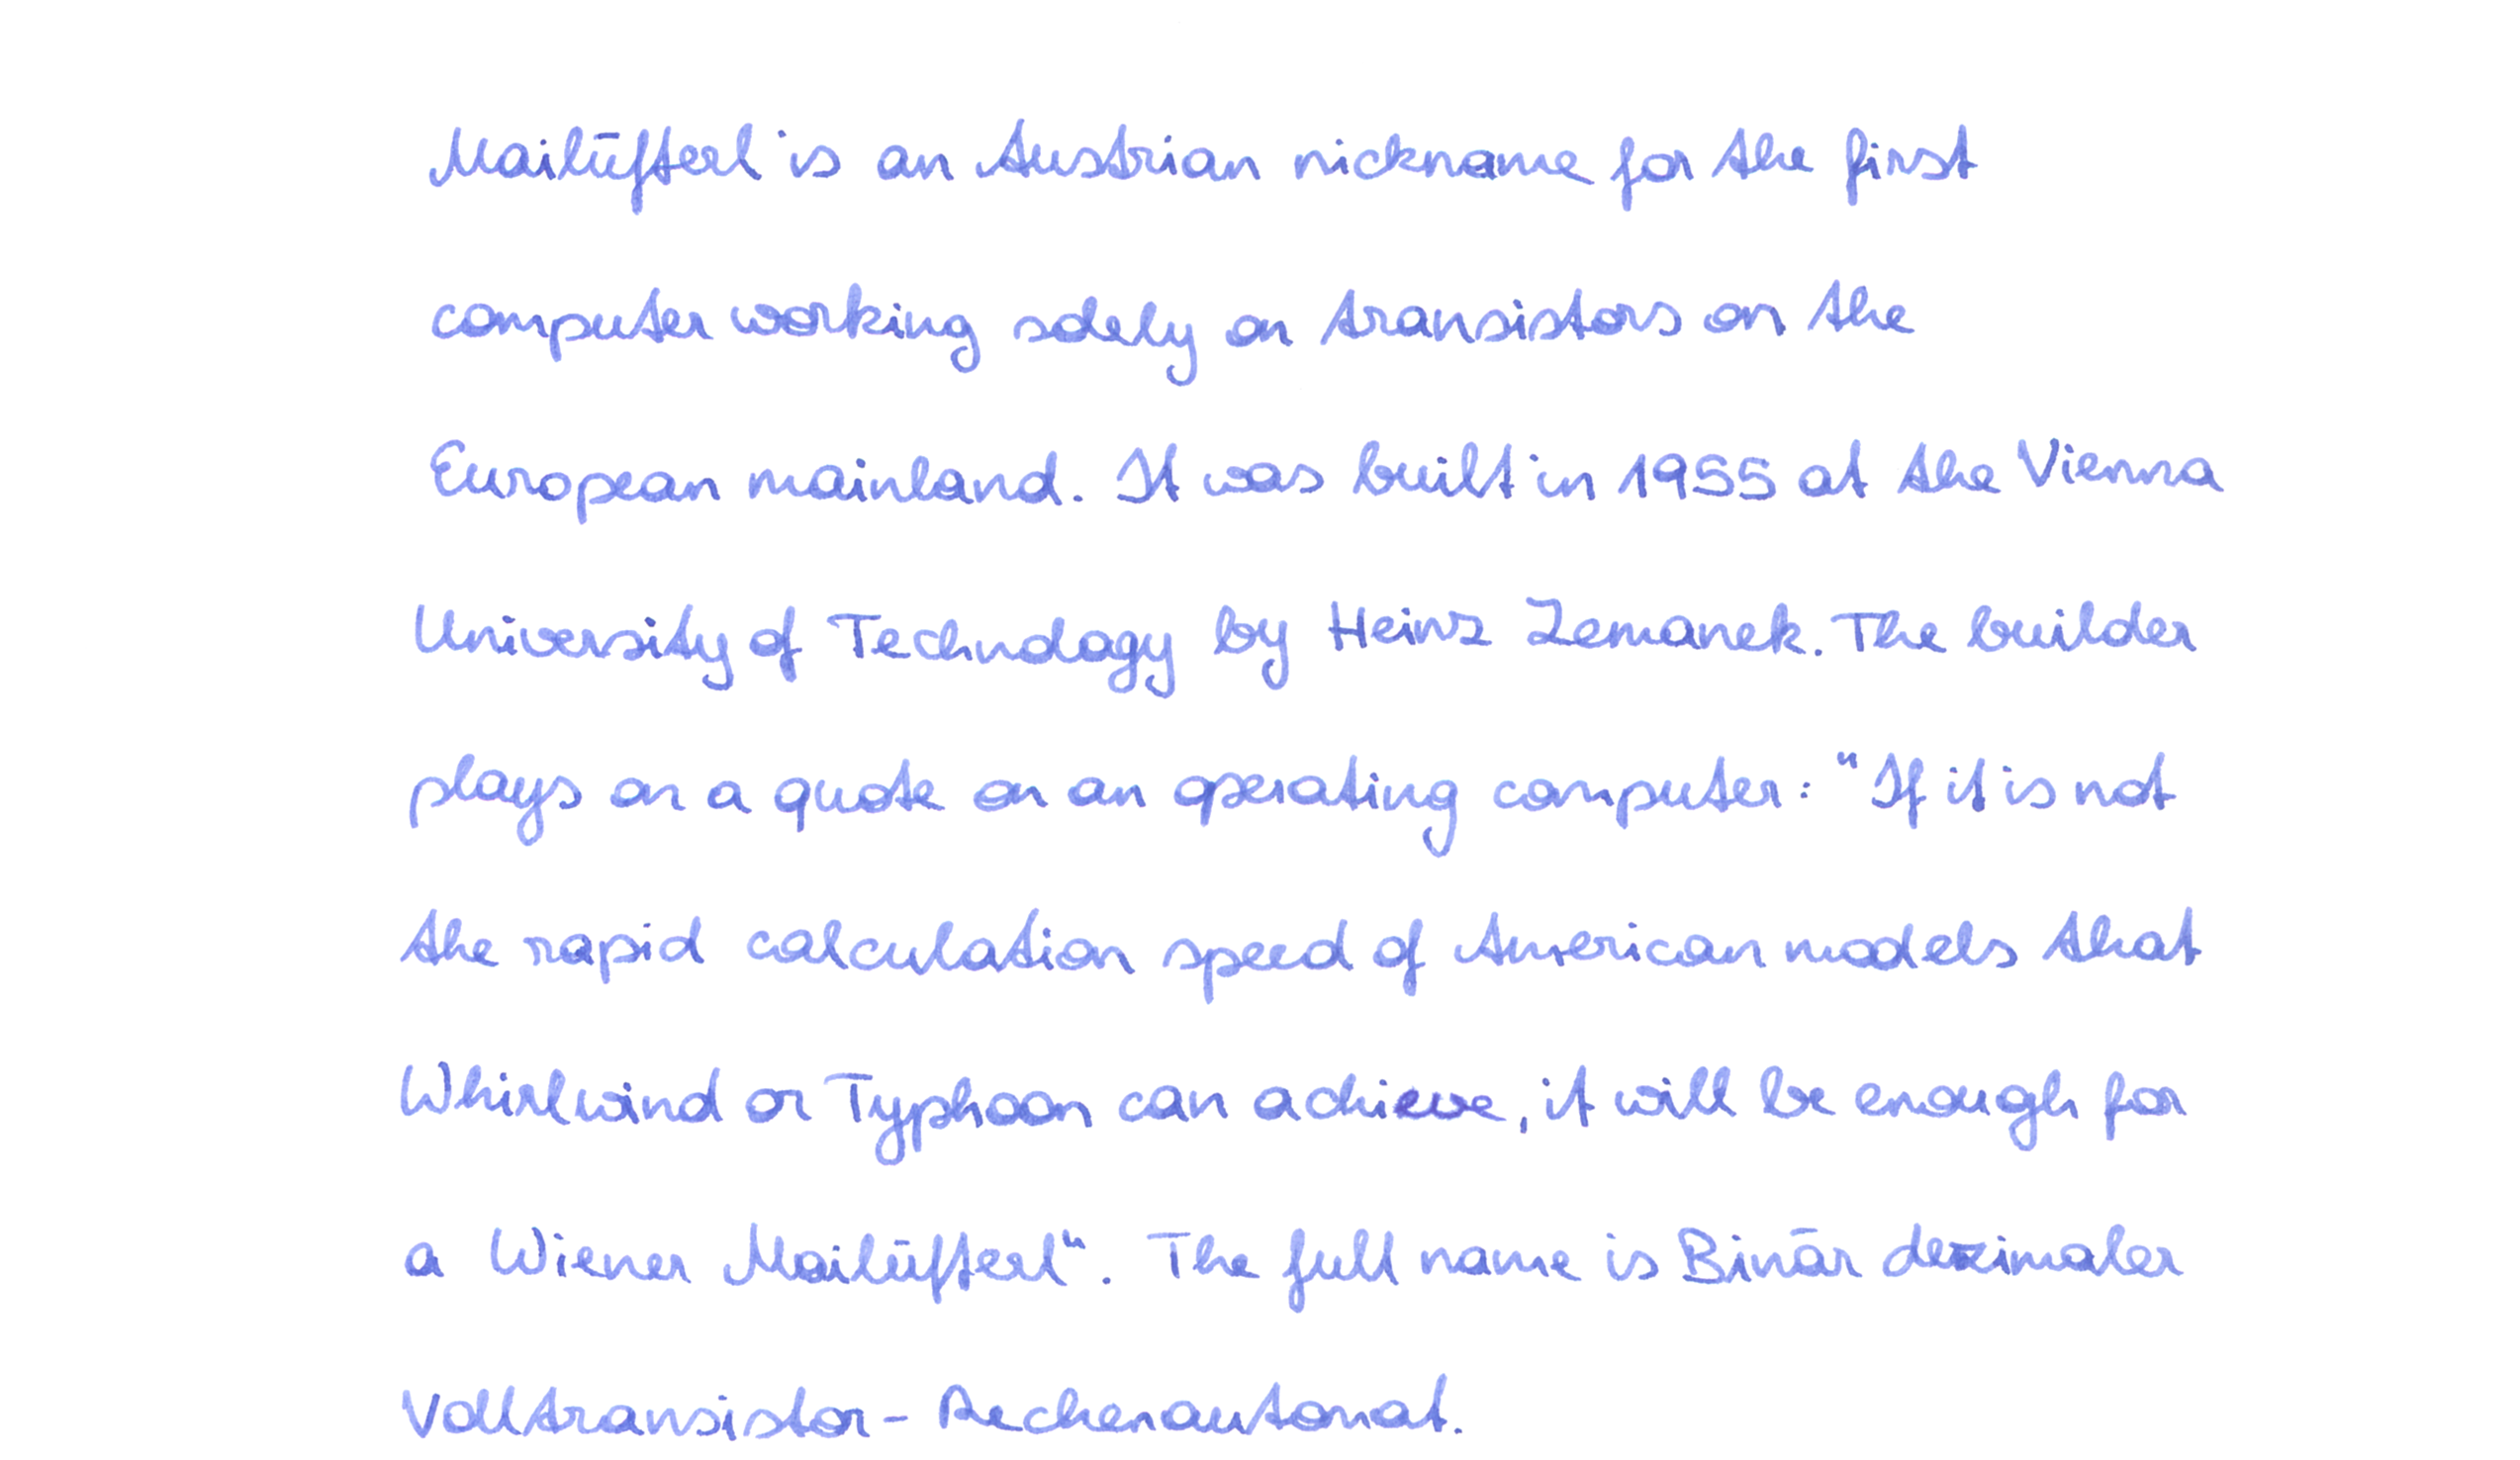 Mailüfterl is an Austrian nickname for the first
computer working solely on transistors on the
European mainland. It was built in 1955 at the Vienna
University of Technology by Heinz Zemanek. The builder
plays on a quote on an operating computer: "If it is not
the rapid calculation speed of American models that
Whirlwind or Typhoon can achieve, it will be enough for
a Wiener Mailüfterl". The full name is Binär dezimaler
Volltransistor-Rechenautomat.